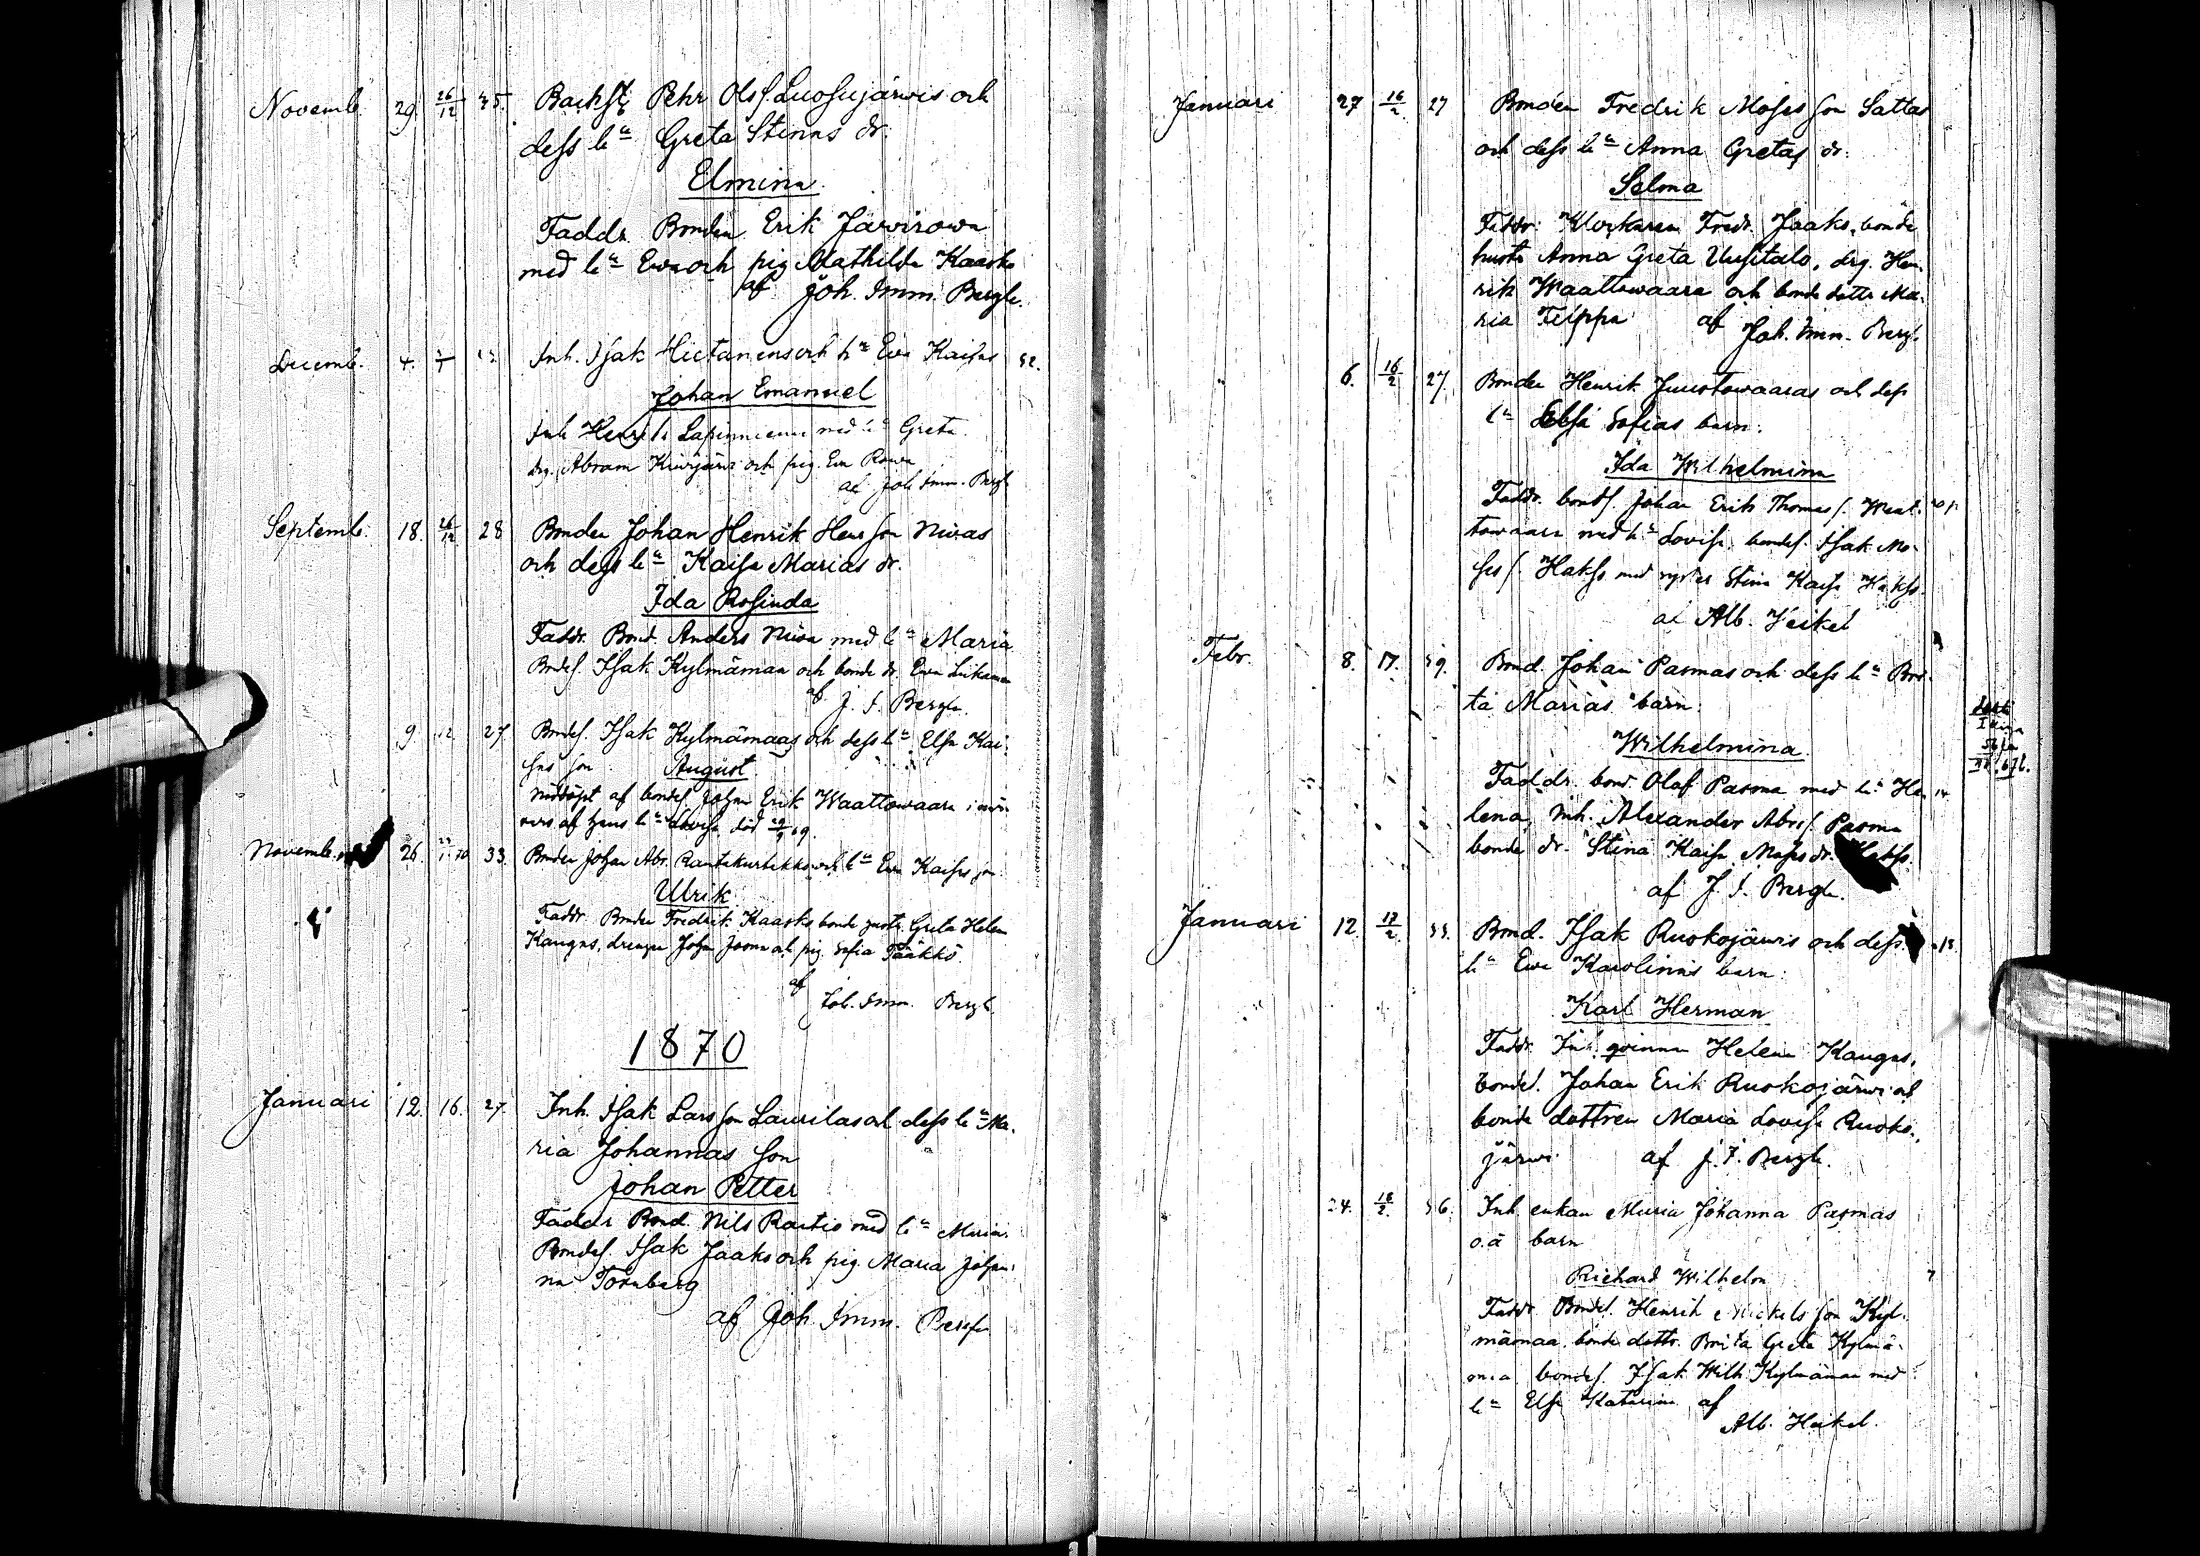 Novemb. 29. 26/12 45. Backst. Pehr Olsf. Luosujärwis och
dess h:u Greta Stinas dr.
Elmina
Faddr. Bonden Erik Järwirowa
med h:u Ewa och pig. Mathilda Kaarko
af Joh. Imm. Bergh.
Decemb. 4. Inh. Isak Hietanens och h:u Ewa Kaisas 52.
Johan Emanuel
Inh. Henrik Lapinniemi med h:u Greta
drg. Abram Kiwijärwi och pig. Ewa Rowa
af Joh. Imm. Bergh
Septemb. 18. 26/12 28 Bonden Johan Henrik Hens son Niwas
och dess h:u Kaisa Marias dr.
Ida Rosinda
Faddr. Bond. Anders Niwa med h:u Maria
Bondes. Isak Kylmämaa och bonde dr. Ewa
af J. I. Bergh.
9. 12 27 Bondes. Isak Kylmämaas och dess h:u Elsa Kai-
sas son August
nöddöpt af bondes. Johan Erik Waattowaara i när-
vara af hans h:u Lovisa, död 69.
Novemb. 26. 33. Bonden Johan Abr. Rantakurkkos och h:u Ewa Kaisas son
Ulrik
Faddr. Bonden Fredrik Kaarko, bonde hustr. Greta Helena
Kangas, drengen Johan och pig. Sofia Pääkkö
af
Joh. Imm. Bergh.
1870
Januari 12. 16. 27. Inh. Isak Lars son Laurilas och dess h:u Ma-
ria Johannas son
Johan Petter
Faddr. Bond. Nils Rautio med h:u Maria.
Bondes. Isak Jaako och pig. Maria Johan-
na Törnberg
af Joh. Imm. Bergh
Januari 27 16/2 27 Bonden Fredrik Moses son Sattas
och dess h:u Anna Gretas dr.
Selma
Faddr. Klockaren Fredr. Jaako, bonde
hustr. Anna Greta Uusitalo, drg. Hen-
rik Waattowaara och bonde dottr. Ma-
ria Teippa af Joh. Imm. Bergh.
6. 16/2 27. Bonden Henrik Juustowaaras och dess
h:u Elsa Sofias barn:
Ida Wilhelmina
Faddr. bondes. Johan Erik Thomas s. Waat-
towaara med h:u Lovisa, bondes. Isak Mo-
ses s. Hakso med syster Stina Kaisa Hakso.
af Alb. Heikel
Febr. 8. 17. 39. Bond. Johan Pasmas och dess h:u Bri-
ta Marias barn:
Wilhelmina
Faddr. bond. Olof Pasma med h:u He-
lena, Inh. Alexander Abr. s. Pasma
bonde dr. Stina Kaisa Moses dr. Hakso.
af J. I. Bergh.
Januari 12. 17/2 33. Bond. Isak Ruokojärwis och dess 13.
h:u Ewa Karolinas barn:
Karl Herman
Faddr. Inh. qvinnan Helena Kangas,
bondes. Johan Erik Ruokojärwi och
bonde dottren Maria Lovisa Ruoko-
järwi. af J. I. Bergh.
24. 18/2 36. Inh. enkan Maria Johanna Pasmas
o.ä. barn
Richard Wilhelm
Faddr. Bondes. Henrik Mickels son Kyl-
mämaa, bonde dottr. Brita Greta Kylmä-
maa, bondes. Isak Wilh. Kylmämaa med
h:u Elsa Katarina af
Alb. Heikel.